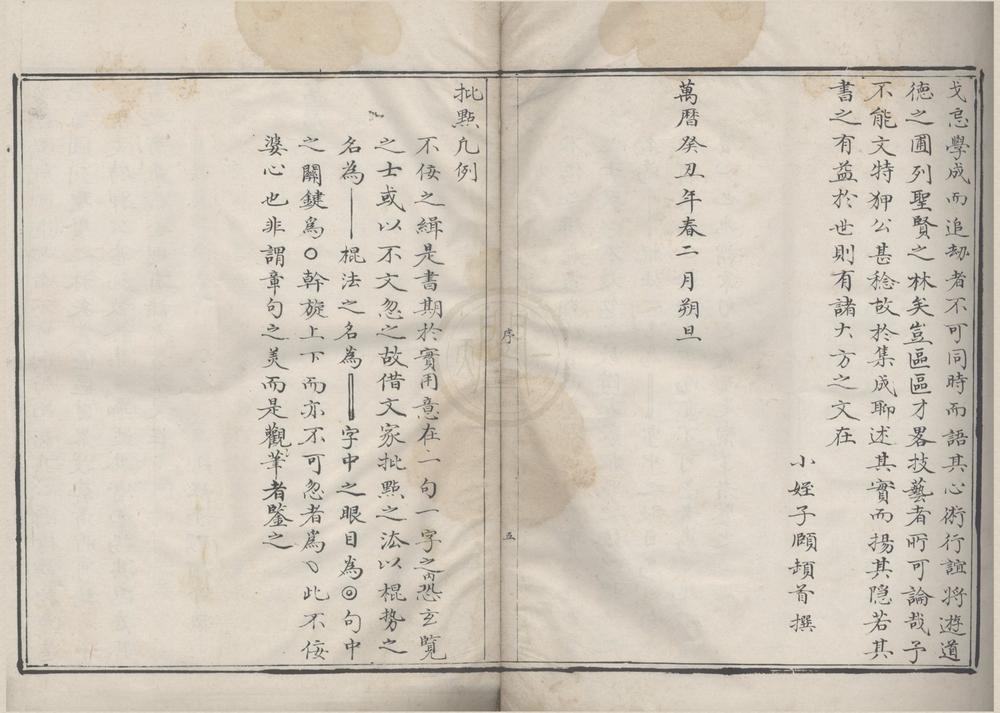 戈忘學成而追劫者不可同時而語其心術行誼將遊道
德之圃列聖賢之林矣豈區區才畧技藝者所可論哉予
不能文特狎公甚稔故於集成聊述其實而揚其隐若其
書之有益於世則有諸大方之文在
小姪子頤頓首撰
萬曆癸丑年春二月朔旦
序
五
批點凡例
不佞之緝是書期於實用意在一句一字之內恐玄覽
之士或以不文忽之故借文家批點之法以棍势之
名為｜棍法之名為‖字中之眼目為◎句中
之關鍵爲○幹旋上下而亦不可忽者爲丶此不佞
婆心也非謂章句之美而是觀筆者鑒之